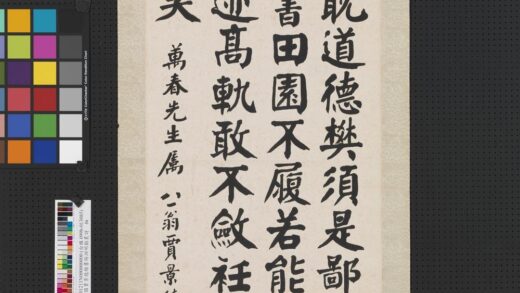 耽道德樊須是鄙
書田園不履若能
迹髙軌敢不斂衽
萬春先生属 八一翁賈景